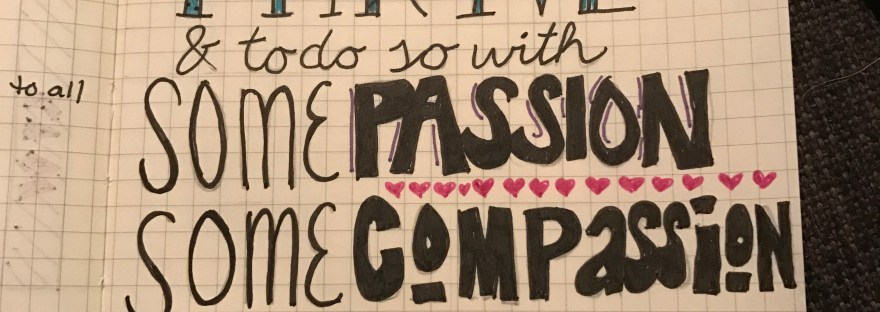 & to do so with
to all
SOME PASSION
SOME COMPASSiON